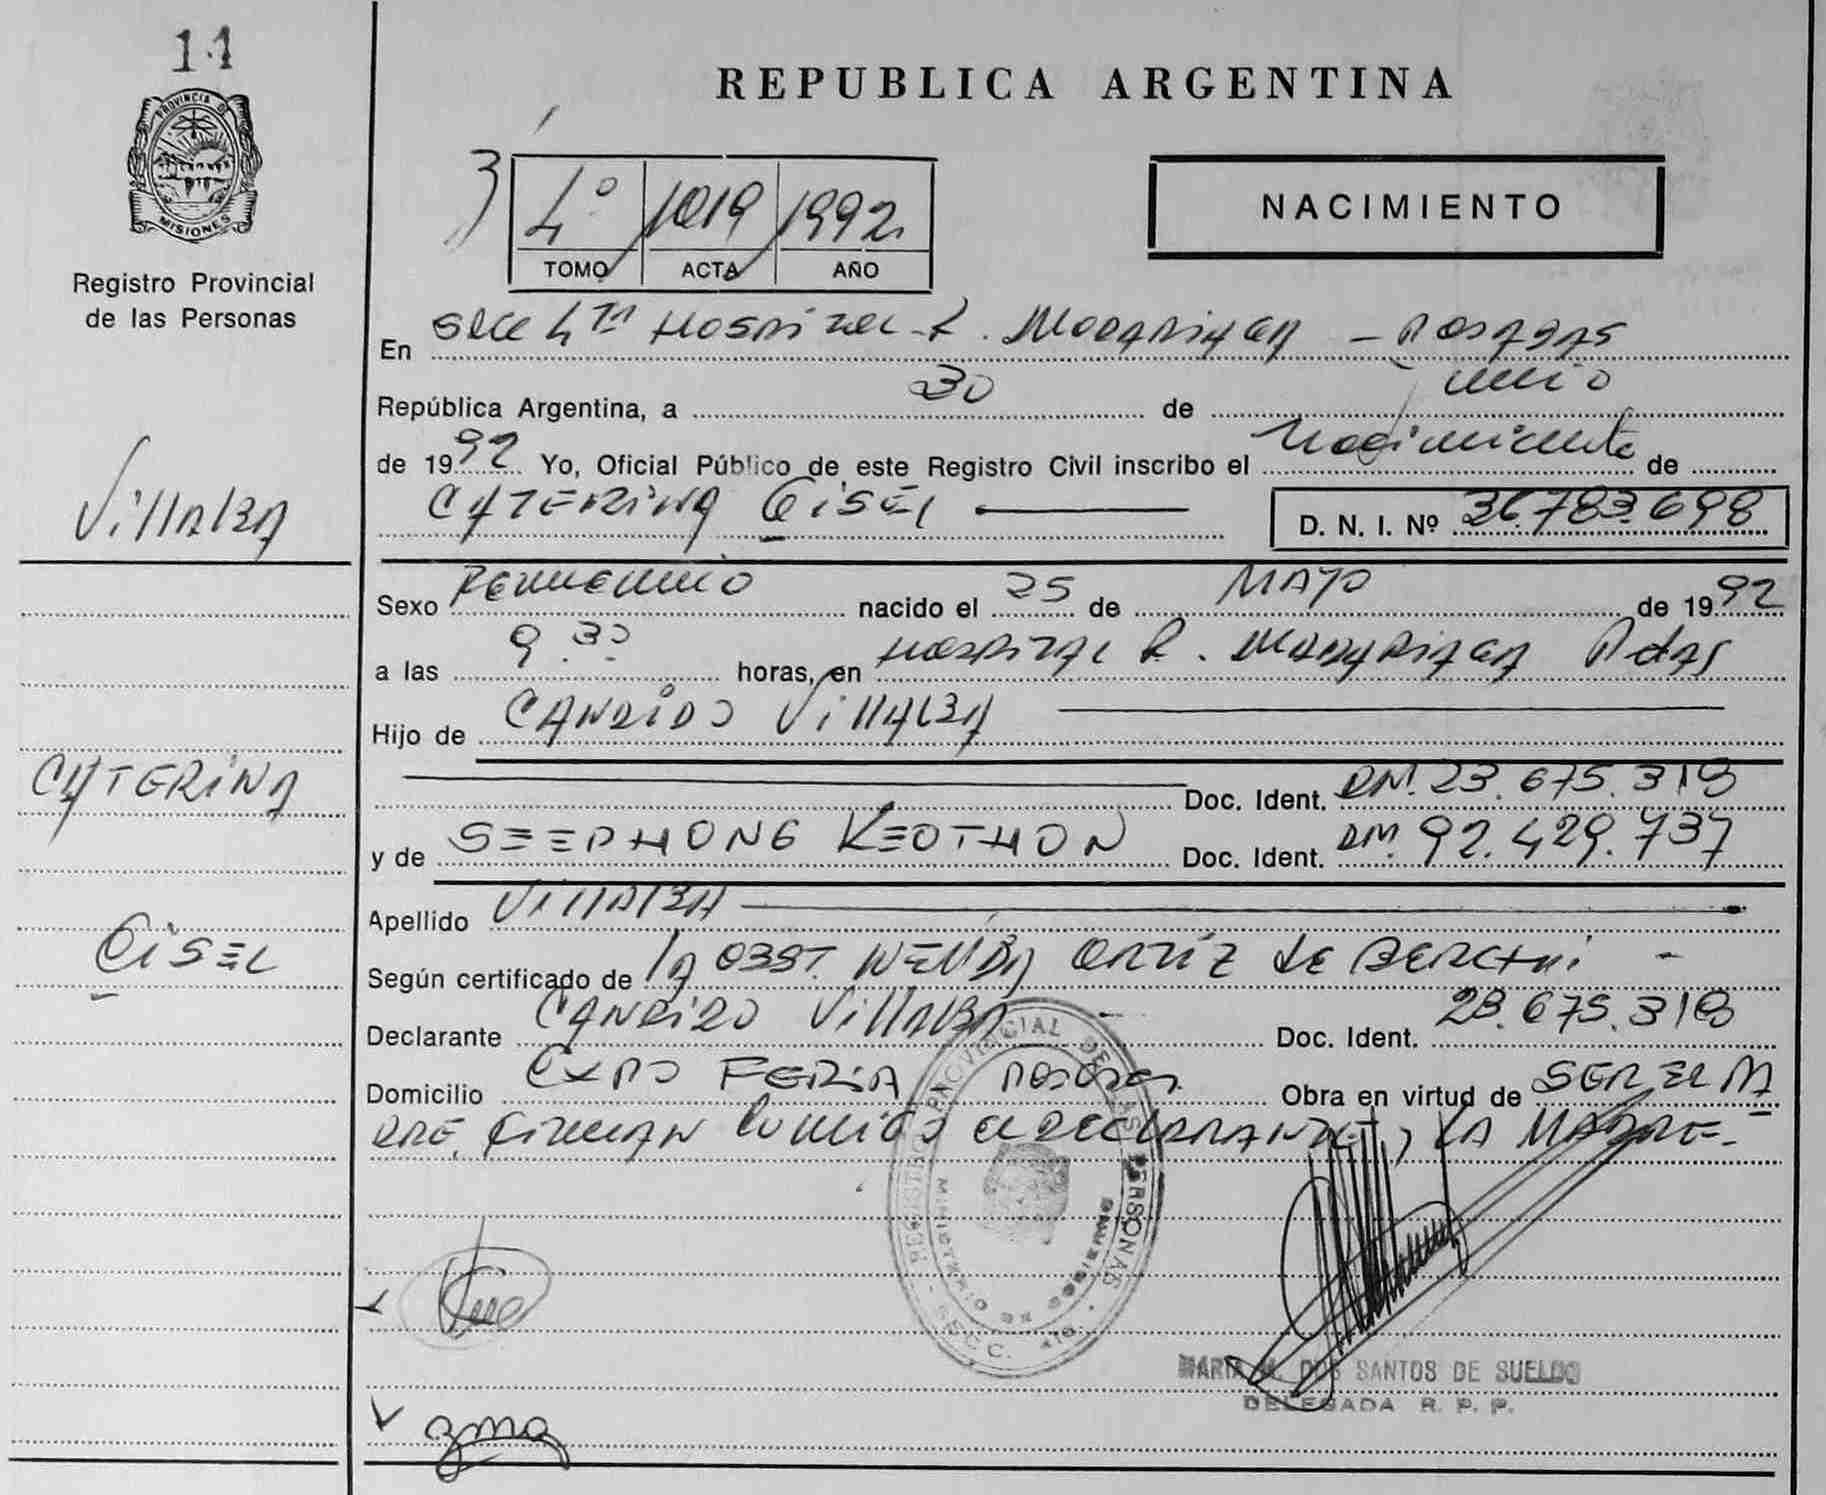 11
PROVINCIA DE
MISIONES
Registro Provincial
de las Personas
VillAlBA
CATERINA
GiSEL
REPUBLICA ARGENTINA
4º 1019 1992
TOMO ACTA AÑO
NACIMIENTO
En Secc 4ta Hospital R. Madariaga - Posadas
República Argentina, a 30 de Junio
de 1992 Yo, Oficial Público de este Registro Civil inscribo el Nacimiento de
CATERINA GiSEL D. N. I. Nº 36.783.698
Sexo Femenino nacido el 25 de MAYO de 1992
a las 9.30 horas, en Hospital R. Madariaga Pdas
Hijo de CANDIDO VillALBA
Doc. Ident. DNI. 23.675.318
y de SEEPHONG KEOTHON Doc. Ident. DNI. 92.429.737
Apellido VillAlBA
Según certificado de la OBST. NELIDA ORTIZ de
Declarante CANDIDO VillAlBA Doc. Ident. 23.675.318
Domicilio EXPO FERIA Posadas Obra en virtud de SER EL PA
DRE, Firman conmigo el DECLARANTE, y LA MADRE.-
REGISTRO PROVINCIAL DE LAS PERSONAS
MINISTERIO DE GOBIERNO
SECC. 4ta.
MARIA M. DOS SANTOS DE SUELDO
DELEGADA R. P. P.